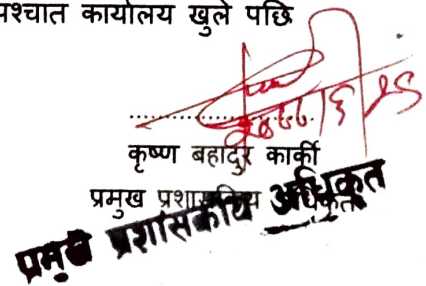 पश्चात कार्यालय खुले पछि
कृष्ण बहादुर कार्की
प्रमुख प्रशासकिय अधिकृत
प्रमुख प्रशासकीय अधिकृत